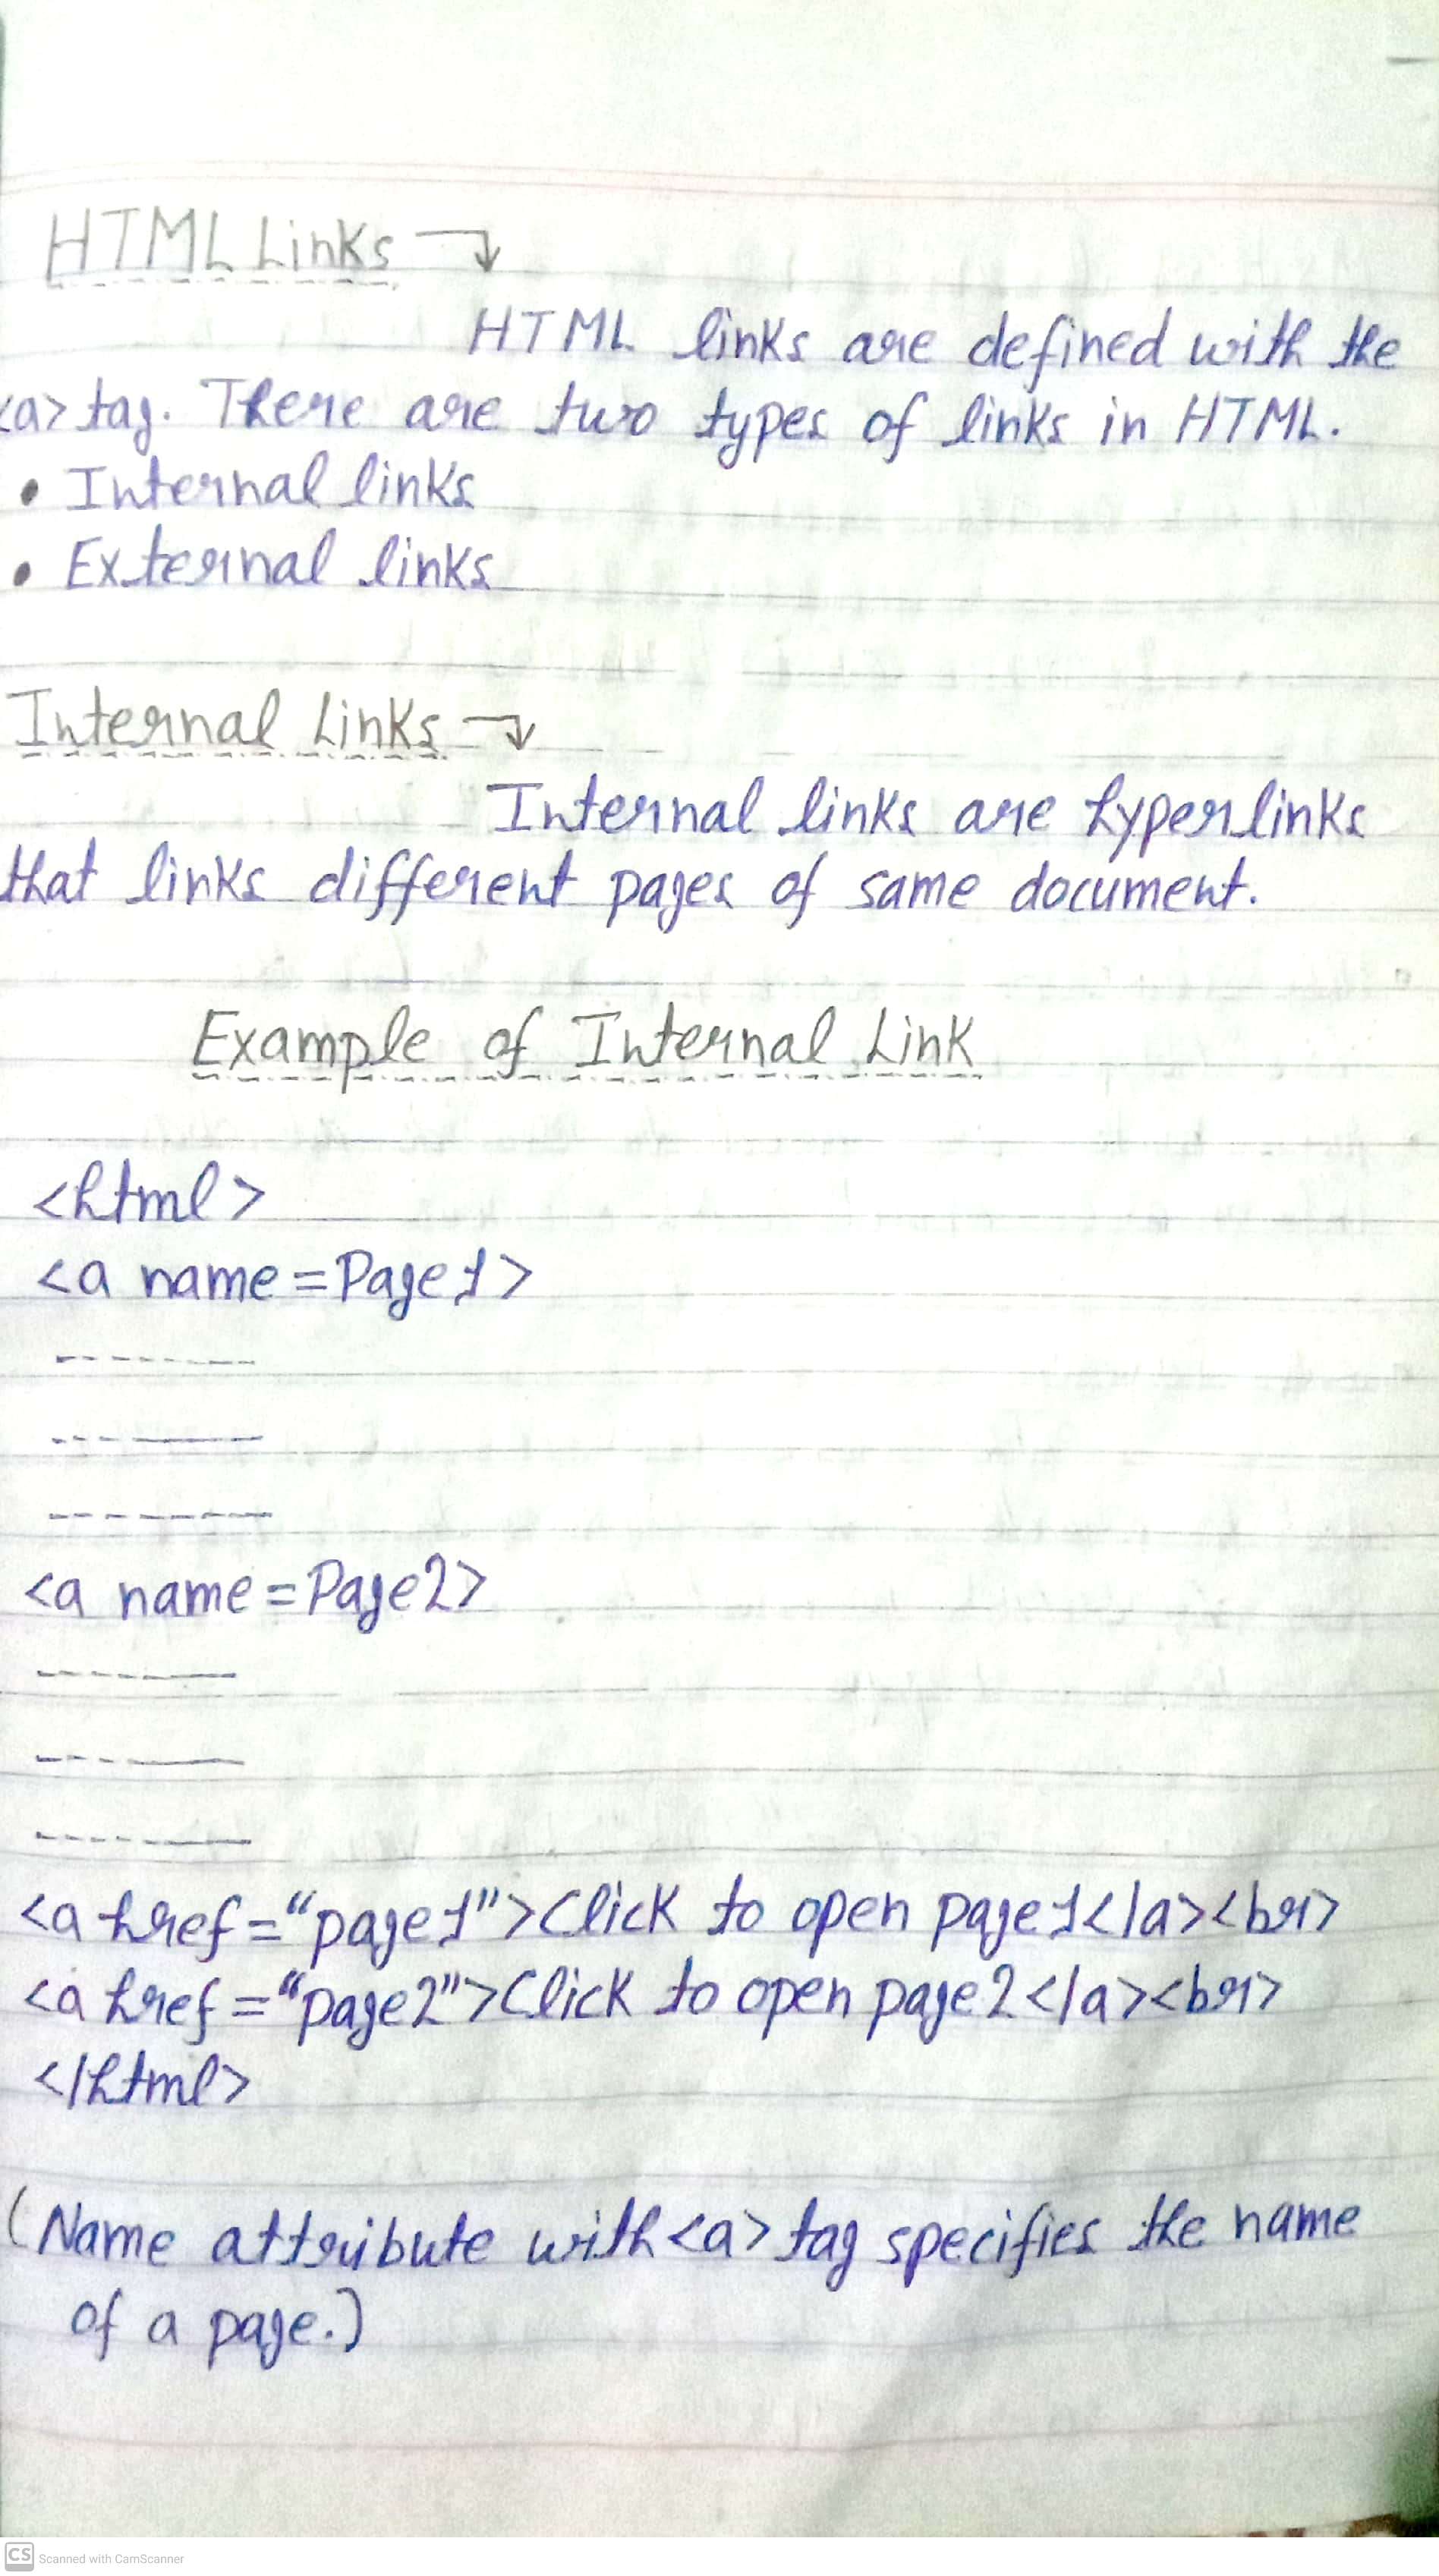 HTML Links →
HTML links are defined with the
<a> tag. There are two types of links in HTML.
• Internal links
• External links
Internal Links →
Internal links are hyperlinks
that links different pages of same document.
Example of Internal Link
<html>
<a name=Page1>
-------
-------
-------
<a name=Page2>
-------
-------
-------
<a href="page1">Click to open page1</a><br>
<a href="page2">Click to open page2</a><br>
</html>
(Name attribute with <a> tag specifies the name
of a page.)
CS Scanned with CamScanner